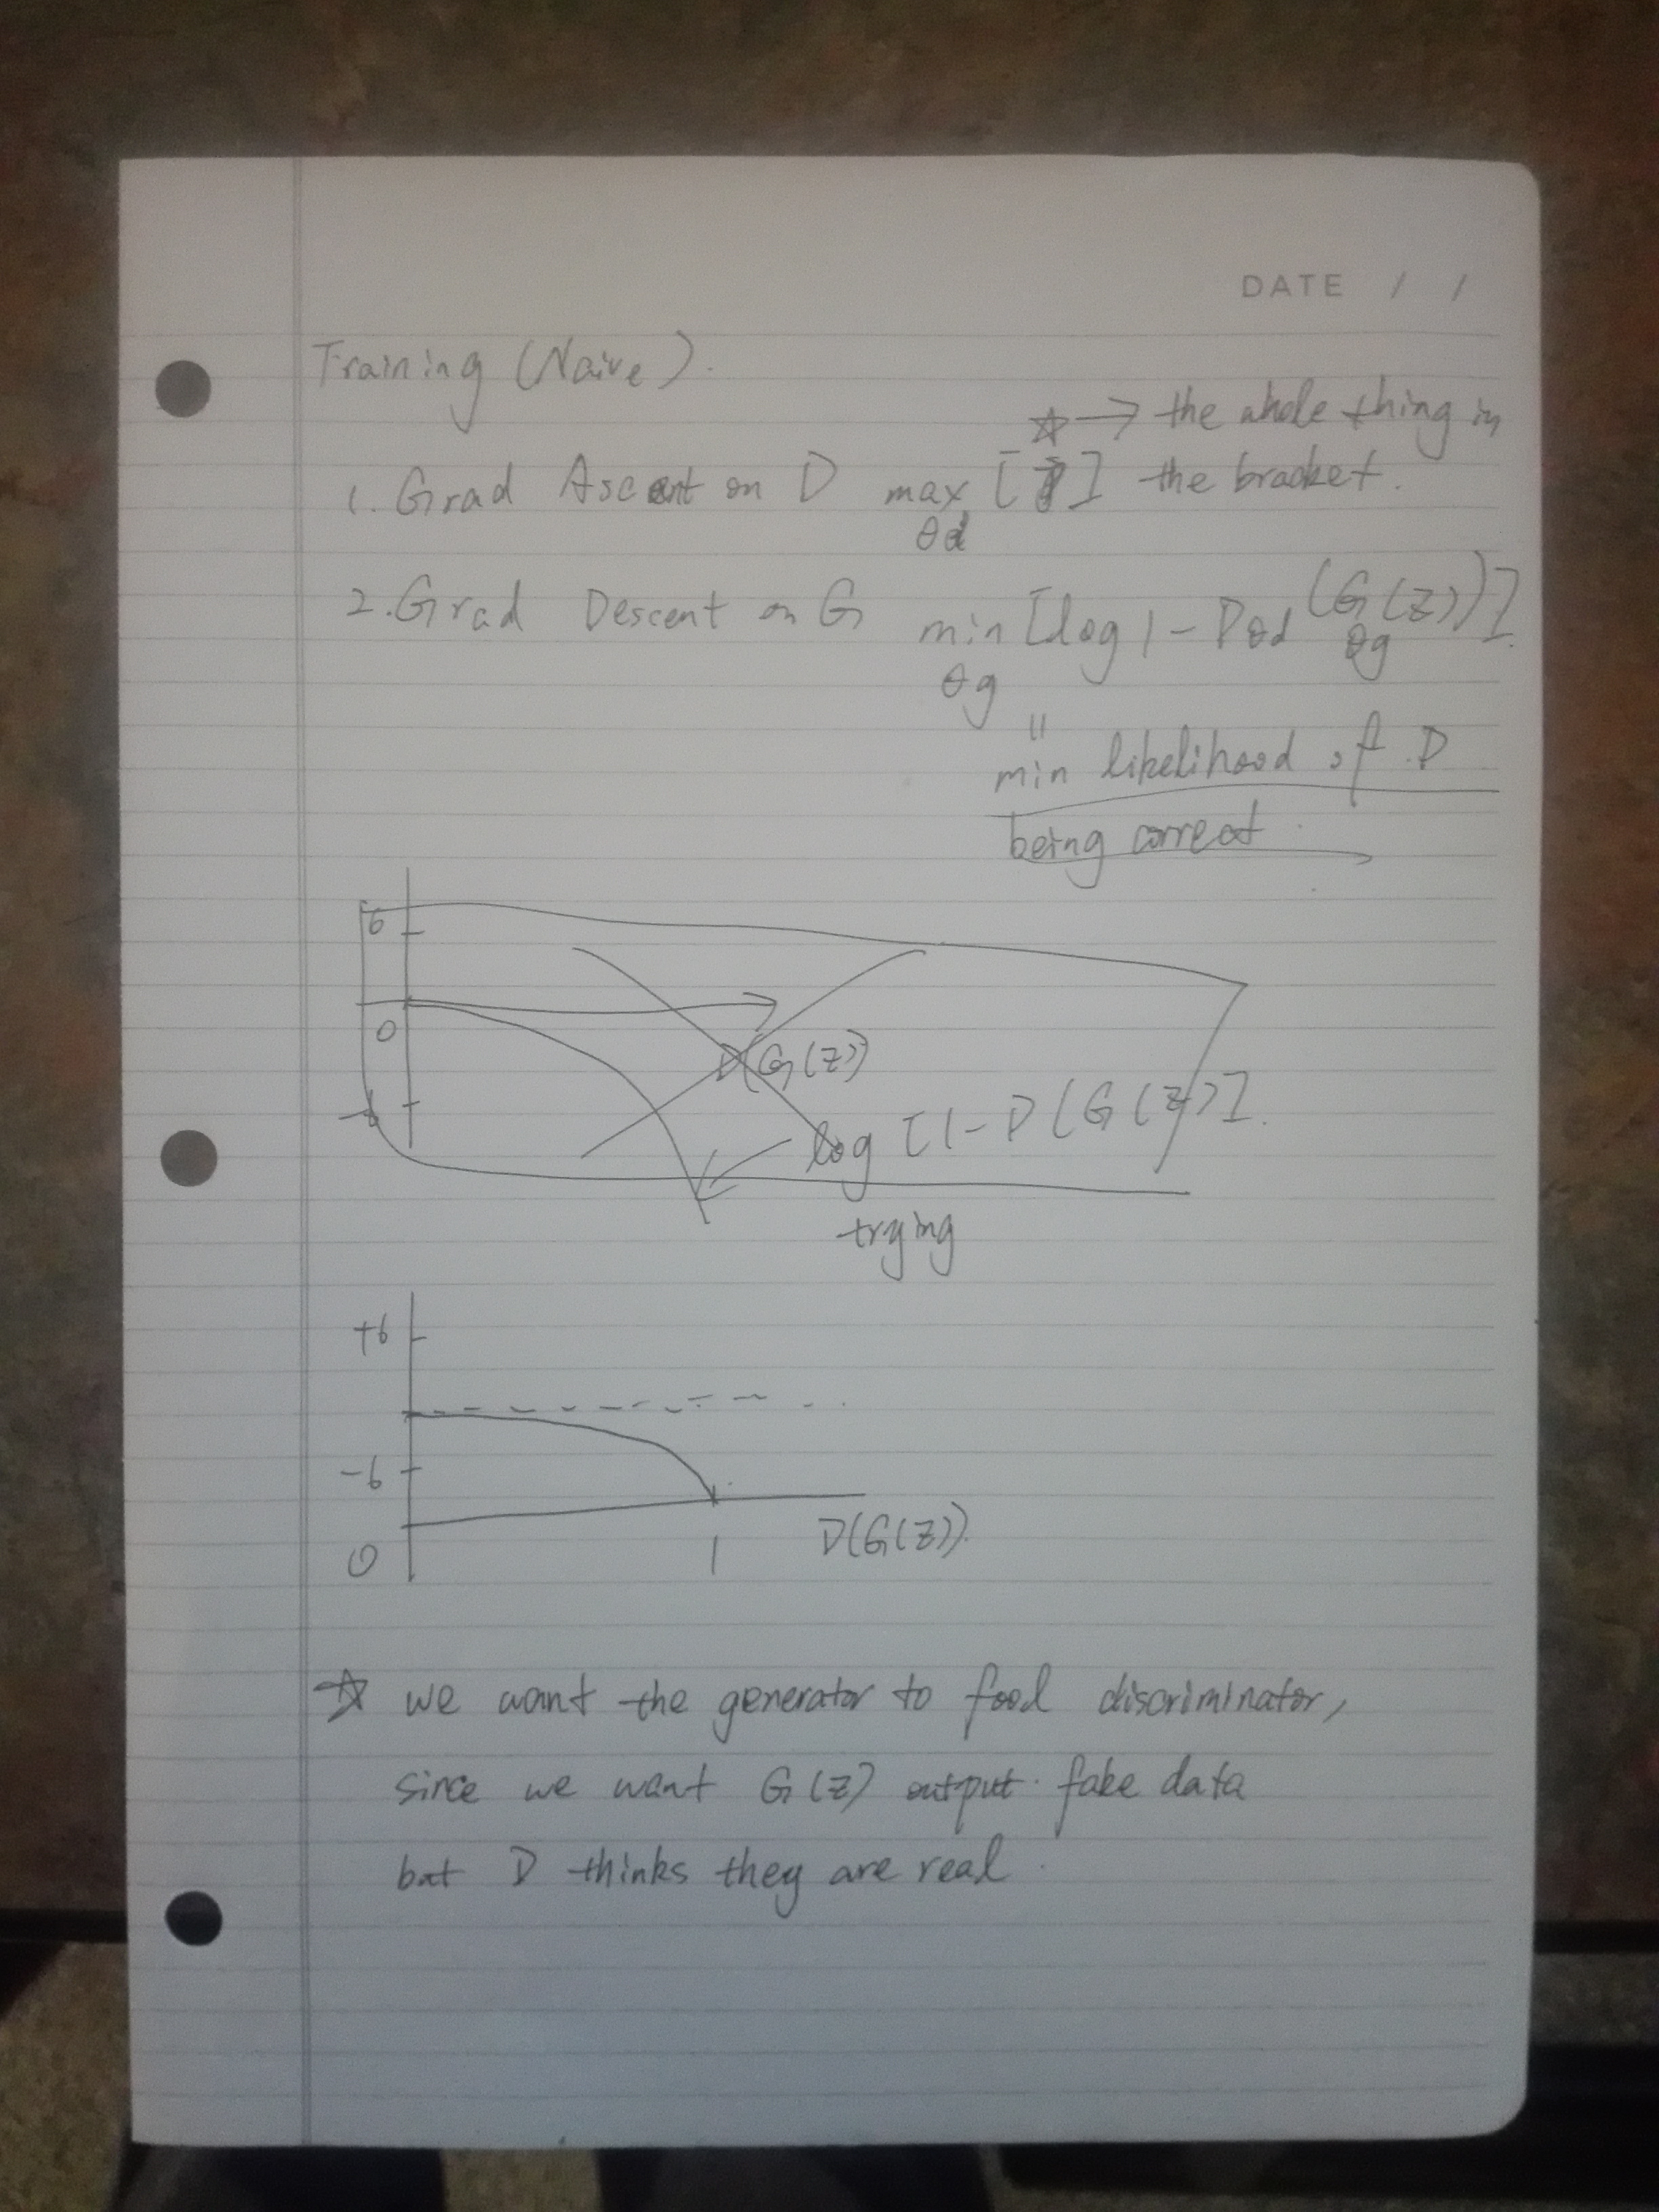 DATE / /
Training (Naive).
☆ → the whole thing in
1. Grad Ascent on D max [ ] the bracket.
θd
2. Grad Descent on G min [log 1 - Dθd (G(z))].
θg θg
||
min likelihood of D
being correct
6
0
D(G(z))
-6
log [1-D(G(z)].
trying
+6
-6
0 1 D(G(z)).
☆ we want the generator to fool discriminator,
since we want G(z) output fake data
but D thinks they are real.